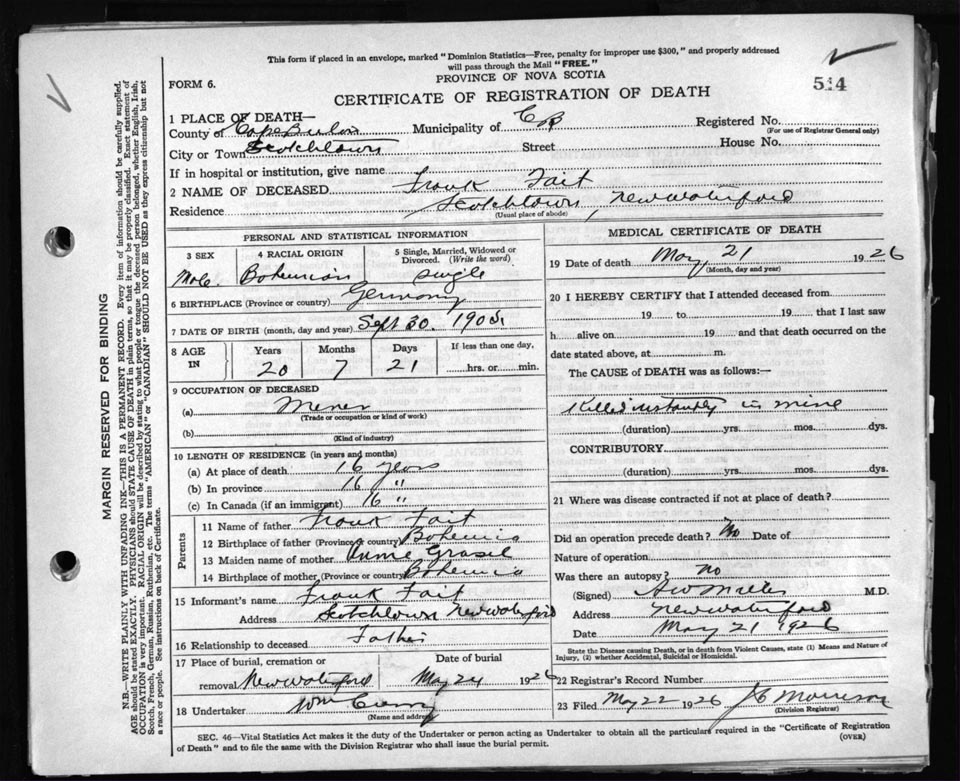 This form if placed in an envelope, marked "Dominion Statistics—Free, penalty for improper use $300," and properly addressed
will pass through the Mail "FREE."
PROVINCE OF NOVA SCOTIA
FORM 6.
514
CERTIFICATE OF REGISTRATION OF DEATH
1 PLACE OF DEATH—
County of Cape Breton Municipality of C B Registered No.
(For use of Registrar General only)
City or Town Scotchtown Street House No.
If in hospital or institution, give name
2 NAME OF DECEASED Frank Fait
Residence Scotchtown, New Waterford
(Usual place of abode)
PERSONAL AND STATISTICAL INFORMATION
3 SEX 4 RACIAL ORIGIN 5 Single, Married, Widowed or
Divorced. (Write the word)
Male. Bohemian Single
6 BIRTHPLACE (Province or country) Germany
7 DATE OF BIRTH (month, day and year) Sept 30. 1905
8 AGE IN Years Months Days If less than one day,
20 7 21 hrs. or min.
9 OCCUPATION OF DECEASED
(a) Miner
(Trade or occupation or kind of work)
(b)
(Kind of industry)
10 LENGTH OF RESIDENCE (in years and months)
(a) At place of death 16 years
(b) In province 16 "
(c) In Canada (if an immigrant) 16 "
Parents
11 Name of father Frank Fait
12 Birthplace of father (Province or country) Bohemia
13 Maiden name of mother Annie Grasel
14 Birthplace of mother (Province or country) Bohemia
15 Informant's name Frank Fait
Address Scotchtown New Waterford
16 Relationship to deceased Father
17 Place of burial, cremation or Date of burial
removal New Waterford May 24 1926
18 Undertaker Wm
(Name and address)
MEDICAL CERTIFICATE OF DEATH
19 Date of death May, 21 1926
(Month, day and year)
20 I HEREBY CERTIFY that I attended deceased from
19 to 19 that I last saw
h alive on 19 and that death occurred on the
date stated above, at m.
The CAUSE of DEATH was as follows:—
Killed instantly in mine
(duration) yrs. mos. dys.
CONTRIBUTORY
(duration) yrs. mos. dys.
21 Where was disease contracted if not at place of death?
Did an operation precede death? No Date of
Nature of operation
Was there an autopsy? No
(Signed) Miller M.D.
Address New Waterford
Date May 21 1926
State the Disease causing Death, or in death from Violent Causes, state (1) Means and Nature of
Injury, (2) whether Accidental, Suicidal or Homicidal.
22 Registrar's Record Number
23 Filed May 22 1926 J C Morrison
(Division Registrar)
SEC. 46—Vital Statistics Act makes it the duty of the Undertaker or person acting as Undertaker to obtain all the particulars required in the "Certificate of Registration
of Death" and to file the same with the Division Registrar who shall issue the burial permit.
(OVER)
MARGIN RESERVED FOR BINDING
N.B.—WRITE PLAINLY WITH UNFADING INK—THIS IS A PERMANENT RECORD. Every item of information should be carefully supplied.
AGE should be stated EXACTLY. PHYSICIANS should STATE CAUSE OF DEATH in plain terms, so that it may be properly classified. Exact statement of
OCCUPATION is very important. RACIAL ORIGIN will be described by stating to what people or tongue the deceased person belonged, whether English, Irish,
Scotch, French, German, Russian, Ruthenian, etc. The terms "AMERICAN" or "CANADIAN" SHOULD NOT BE USED as they express citizenship but not
a race or people. See instructions on back of Certificate.